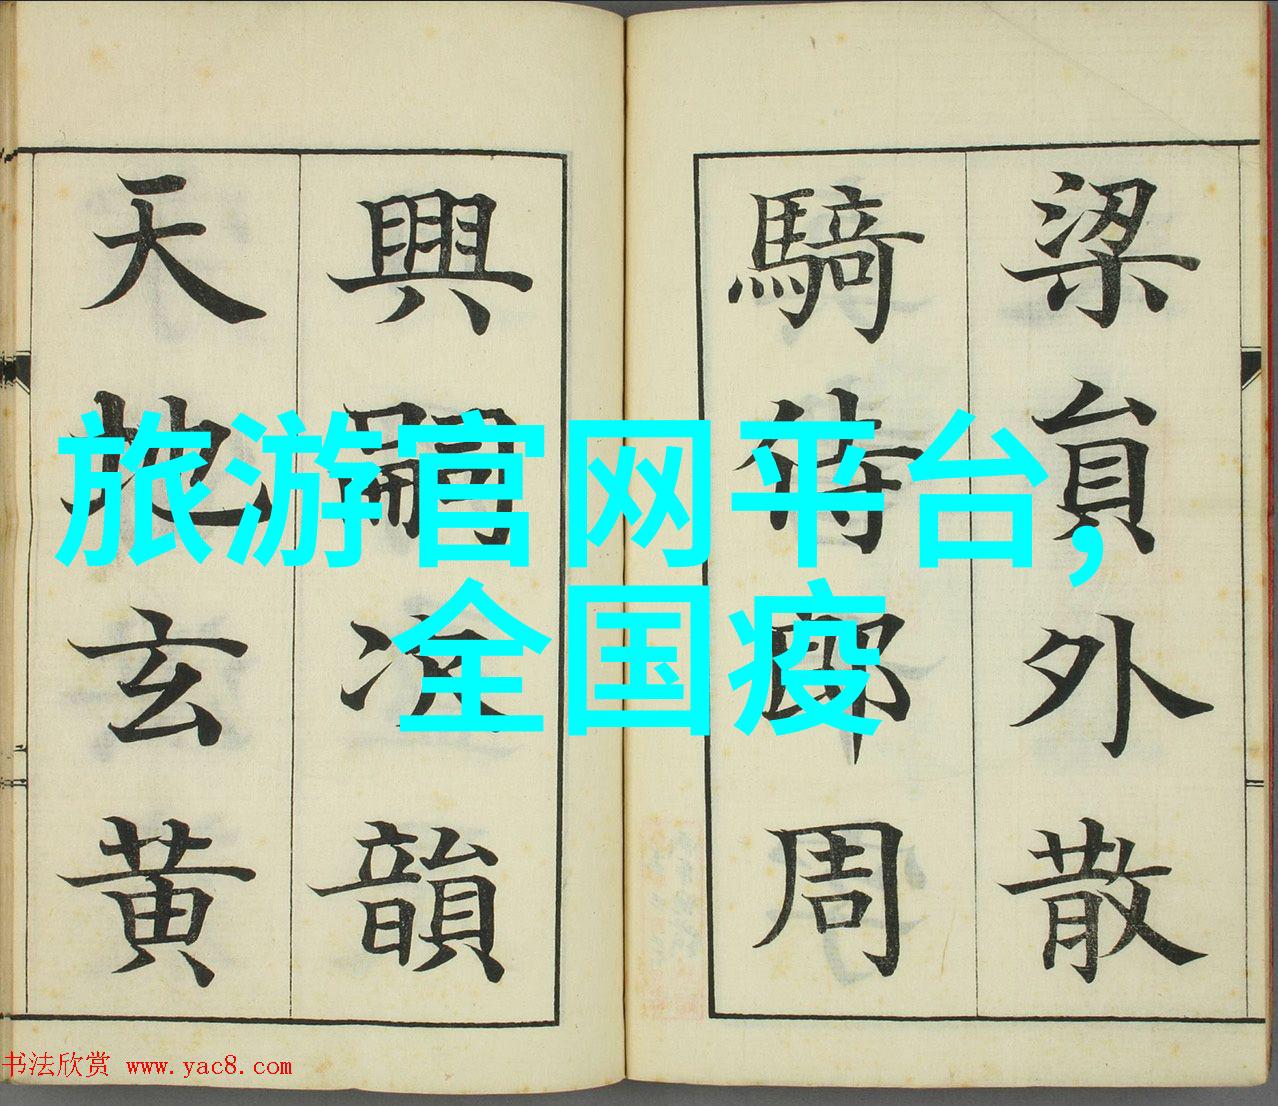 梁貟外散
騎侍郎周
興嗣次韻
天地玄黄
旅游官网平台，
全国疫
书法欣赏 www.yac8.com